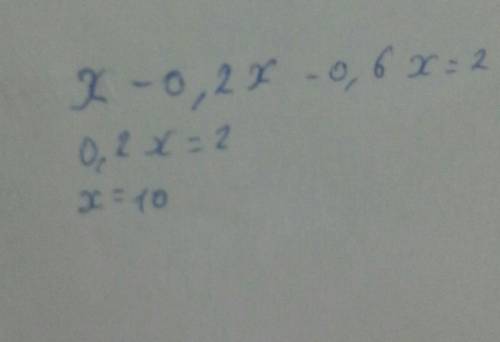 x - 0,2x - 0,6x = 2
0,2x = 2
x = 10